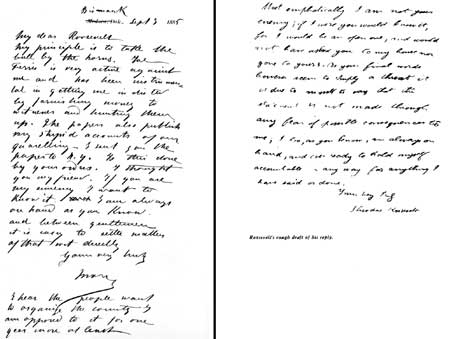 Bismarck
Sept 3 1885
My dear Roosevelt
My principle is to take the
bull by the horns. Joe
Ferris is very active against
me and has been instrumen-
tal in getting me indicted
by furnishing money to
witnesses and hunting them
up. The papers also publish
very stupid accounts of our
quarrelling - I sent you the
paper to N.Y. Is this done
by your orders. I thought
you my friend. If you are
my enemy I want to
know it. I am always
on hand as you know
and between gentlemen
it is easy to settle matters
of that sort directly
Yours very truly
Morès
I hear the people want
to organize the county I
am opposed to it for one
year more at least
Most emphatically I am not your
enemy; if I were you would know it,
for I would be an open one, and would
not have asked you to my house nor
gone to yours. As your final words
however seem to imply a threat it
is due to myself to say that the
statement is not made through
any fear of possible consequences to
me; I too, as you know, am always on
hand, and ever ready to hold myself
accountable in any way for anything I
have said or done.
Yours very truly
Theodore Roosevelt
Roosevelt's rough draft of his reply.